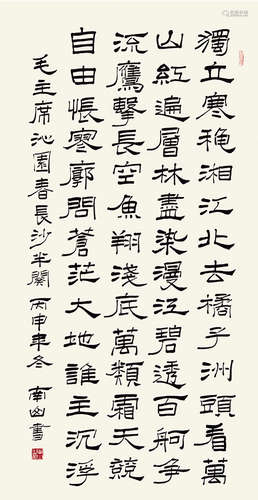 獨立寒穐湘江北去橘子洲頭看萬
山紅遍層林盡染漫江碧透百舸争
流鷹擊長空魚翔淺底萬類霜天競
自由悵寥廓問蒼茫大地誰主沉浮
毛主席沁園春長沙半闋丙申年冬南山書